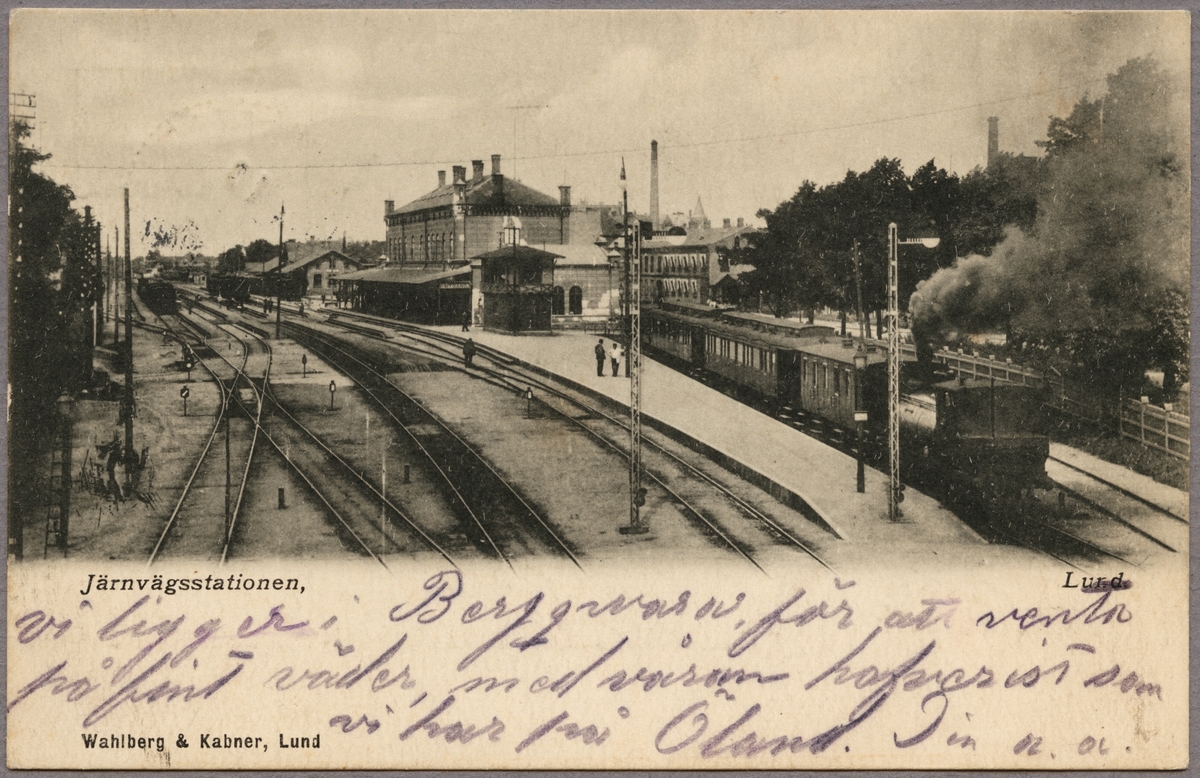 Järnvägsstationen, Lund.
vi ligger i Bergqvara, för att venta
på fint väder, med våran hafverist som
vi har på Öland. Din a. a.
Wahlberg & Kabner, Lund